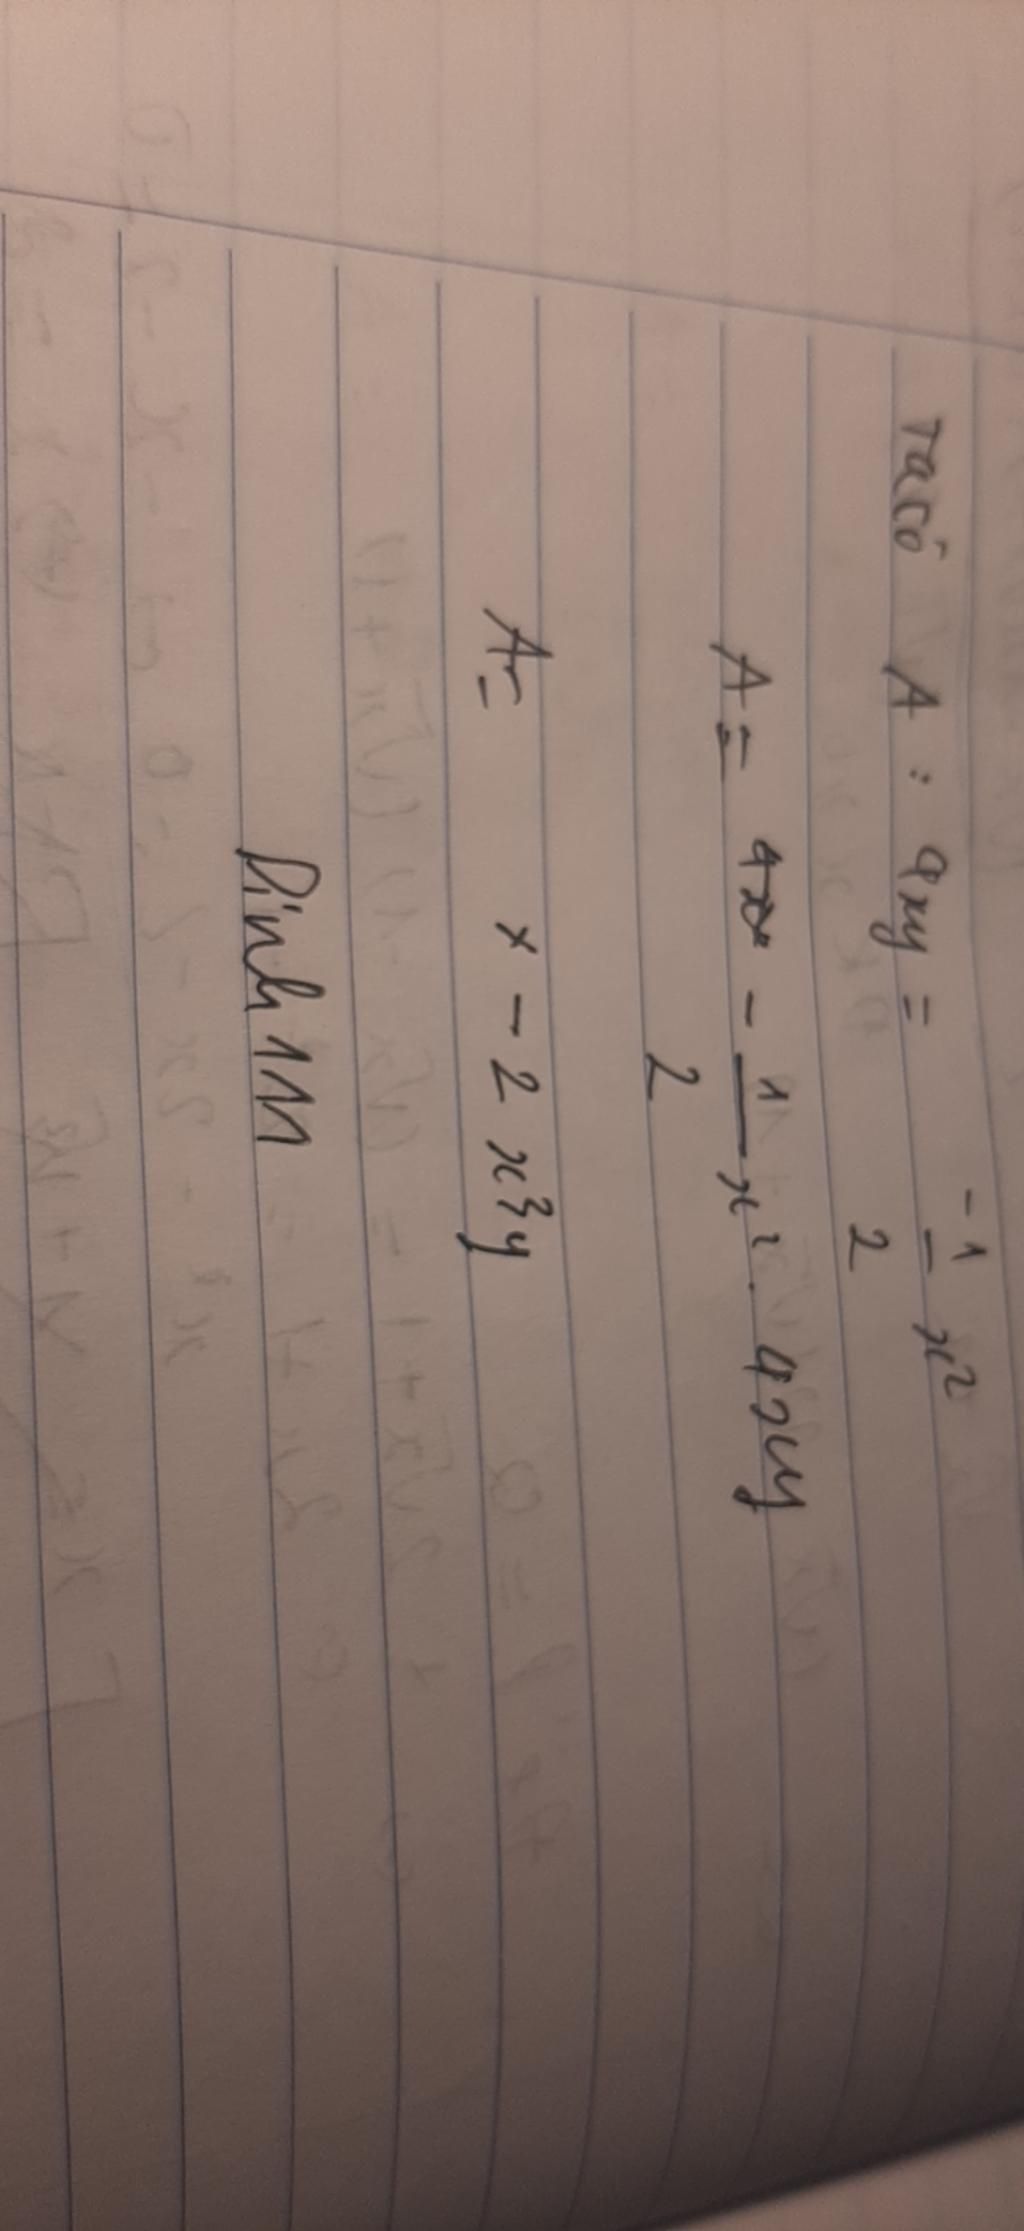 Ta có A : 4xy = -1/2 x²
A = - 1/2 x² . 4xy
A = - 2 x³y
Dinh 1M